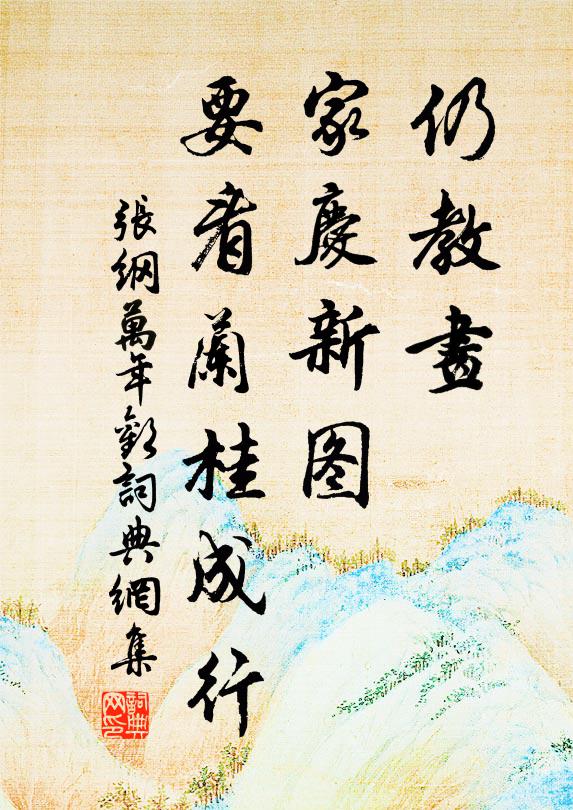 仍教畫
家慶新图
要看蘭桂成行
張綱萬年歡詞典網集
詞典網印